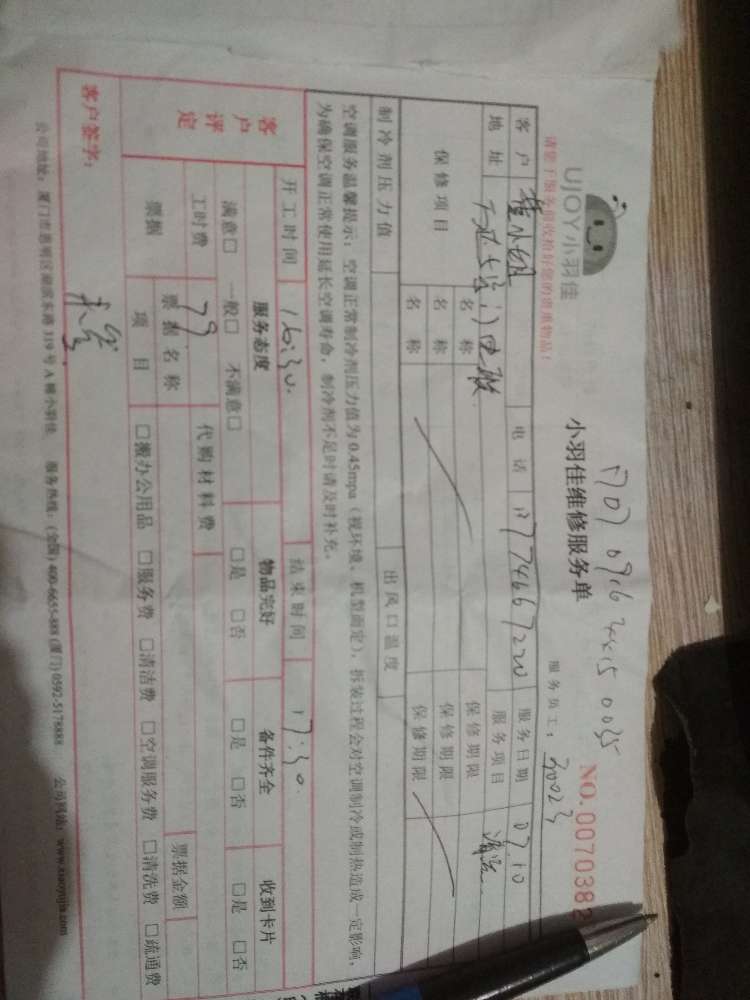 UJOY小羽佳
小羽佳维修服务单
NO.0070382
请您于服务前收拾好您的贵重物品!
服务员工: 30023
客户 小姐 电话 服务日期 09.10
地址 服务项目 清洗
保修项目 名称 保修期限
名称 保修期限
名称 保修期限
制冷剂压力值 出风口温度
空调服务温馨提示:空调正常制冷剂压力值为0.45mpa(视环境、机型而定),拆装过程会对空调制冷或制热造成一定影响,
为确保空调正常使用延长空调寿命,制冷剂不足时请及时补充。
开工时间 16:30. 结束时间 17:30.
客户评定 服务态度 物品完好 备件齐全 收到卡片
满意□ 一般□ 不满意□ □是 □否 □是 □否 □是 □否
工时费 79 代购材料费
票据 票据名称 票据金额
项目 □搬办公用品 □服务费 □清洁费 □空调服务费 □清洗费 □疏通费
客户签字:
公司地址:厦门市思明区湖滨东路319号A栋小羽佳 服务热线:(全国)400-6655-888(厦门)0592-5178888 公司网站:www.xiaoyujia.com